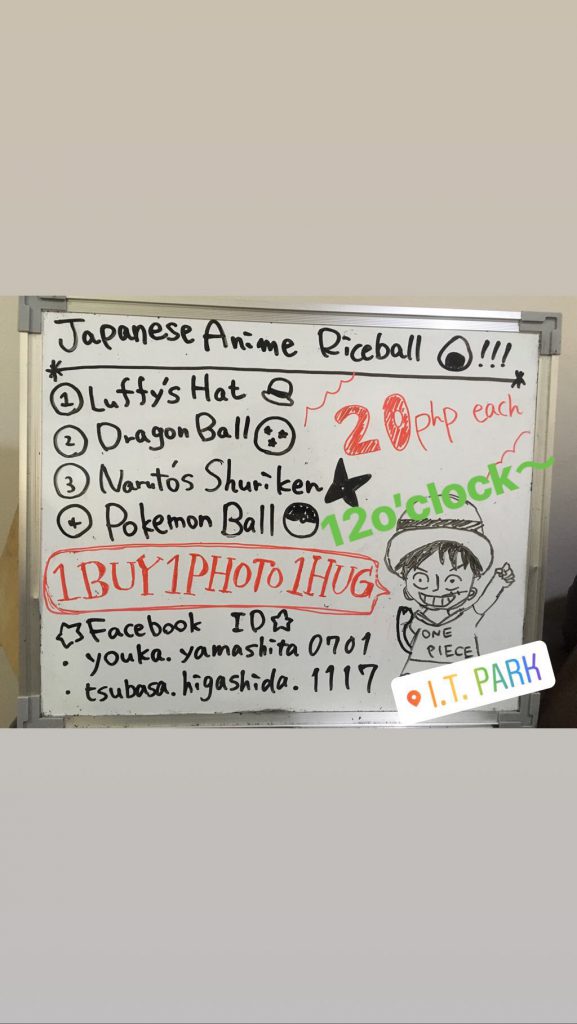 Japanese Anime Riceball !!!
① Luffy's Hat
② Dragon Ball
③ Naruto's Shuriken
④ Pokemon Ball
20php each
12o'clock~
1BUY1PHOTO1HUG
Facebook ID
・youka.yamashita0701
・tsubasa.higashida.1117
ONE
PIECE
I.T. PARK